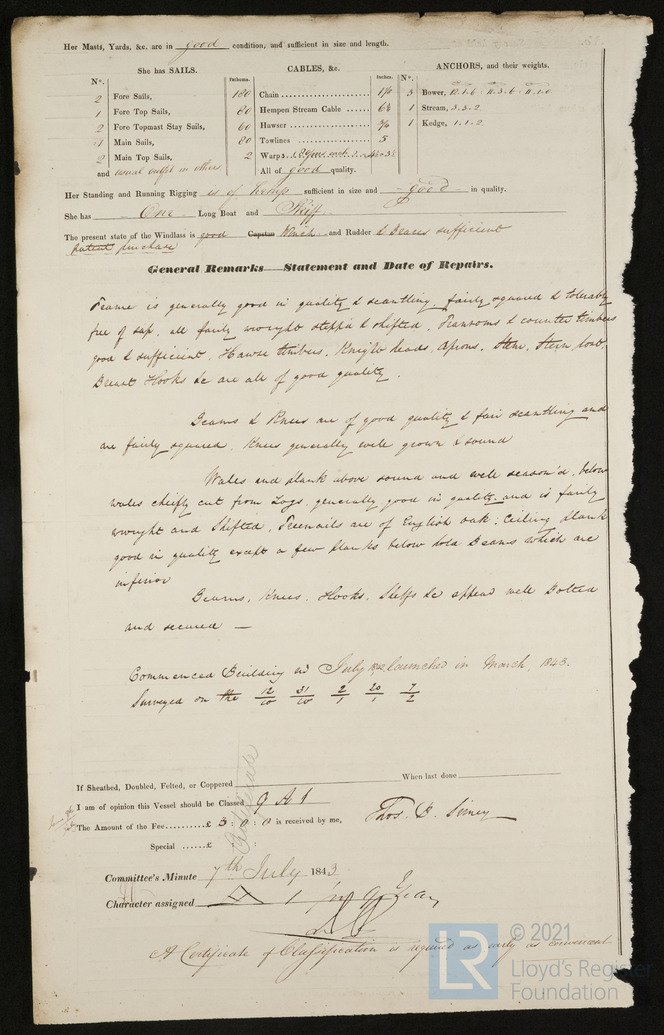 Her Masts, Yards, &c. are in good condition, and sufficient in size and length.
She has SAILS.
CABLES, &c.
ANCHORS, and their weights.
N°.
Fathoms.
Inches.
N°.
2 Fore Sails,
1 Fore Top Sails,
2 Fore Topmast Stay Sails,
1 Main Sails,
2 Main Top Sails,
and usual outfit in others
Chain
Hempen Stream Cable
Hawser
Towlines 5
Warps
All of good quality.
3 Bower,
1 Stream, 3.3.2
1 Kedge, 1.1.2
Her Standing and Running Rigging is of Hemp sufficient in size and good in quality.
She has One Long Boat and Skiff
The present state of the Windlass is good Capstan Winch and Rudder & Braces sufficient
patent purchase
General Remarks—Statement and Date of Repairs.
Frame is generally good in quality & scantling, fairly squared & tolerably
free of sap, all fairly wrought & shifted, Transoms & counter timbers
good & sufficient, Hawse timbers, Knight heads, Aprons, Stem, Stern post,
Breast Hooks &c are all of good quality.
Beams & Knees are of good quality & fair scantling and
are fairly squared, Knees generally well grown & sound
Wales and plank above sound and well season'd, below
wales chiefly cut from Logs, generally good in quality, and is fairly
wrought and shifted, Treenails are of English oak; Ceiling plank
good in quality except a few planks below hold Beams which are
inferior
Beams, Knees, Hooks, &c appear well Bolted
and secured —
Commenced Building in July 1842, launched in March, 1843.
Surveyed on the 12/10 31/10 2/1 20/1 7/2
If Sheathed, Doubled, Felted, or Coppered When last done
I am of opinion this Vessel should be Classed 9 A 1
The Amount of the Fee £ 3 : 0 : 0 is received by me, Thos. B. Simey
Special £
Certificate
Committee's Minute 7th July 1843
Character assigned A 1 for 9 Years
A Certificate of Classification is required as early as convenient
LR
© 2021
Lloyd's Register
Foundation